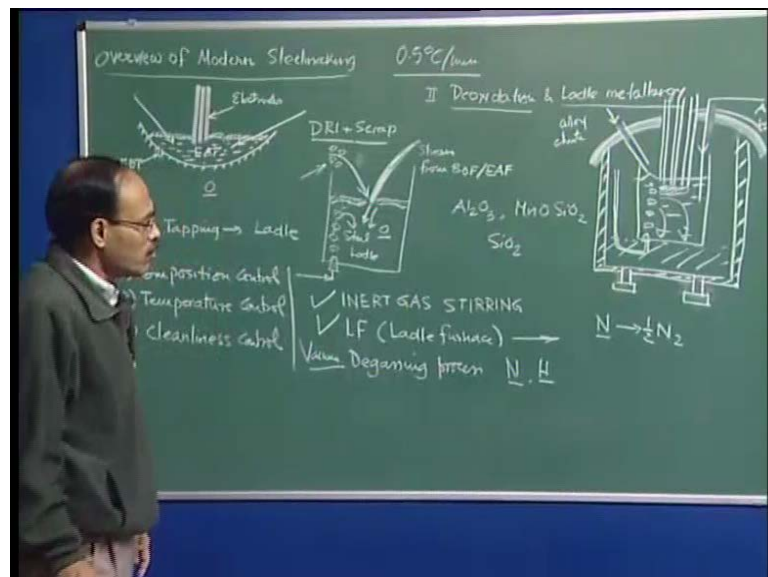 Overview of Modern Steelmaking
0.5°C/min
II Deoxidation & Ladle metallurgy
Electrodes
EAF
EBT
O
DRI + Scrap
Stream
from BOF/EAF
Steel O
Ladle
alloy
chute
Al2O3, MnO SiO2
SiO2
Tapping → Ladle
omposition control
Temperature Control
Cleanliness Control
✓ INERT GAS STIRRING
✓ LF (Ladle furnace) →
Vacuum Degassing process N, H
N → ½ N2